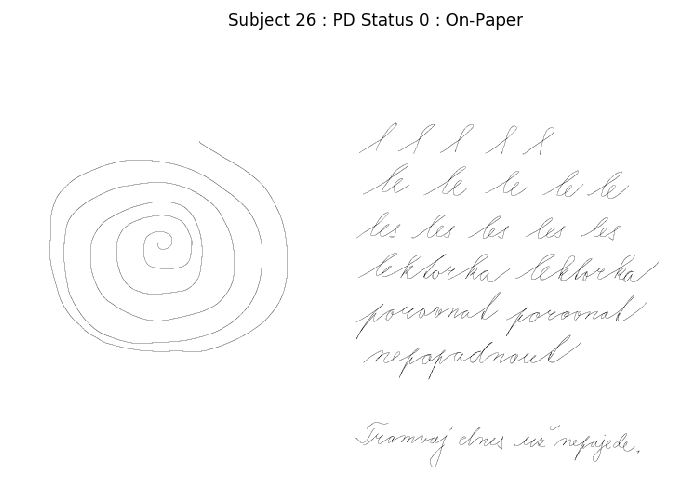 Subject 26 : PD Status 0 : On-Paper
l l l l l
le le le le le
les les les les les
lektorka lektorka
porovnat porovnat
nepopadnout
Tramvaj dnes už nepojede.